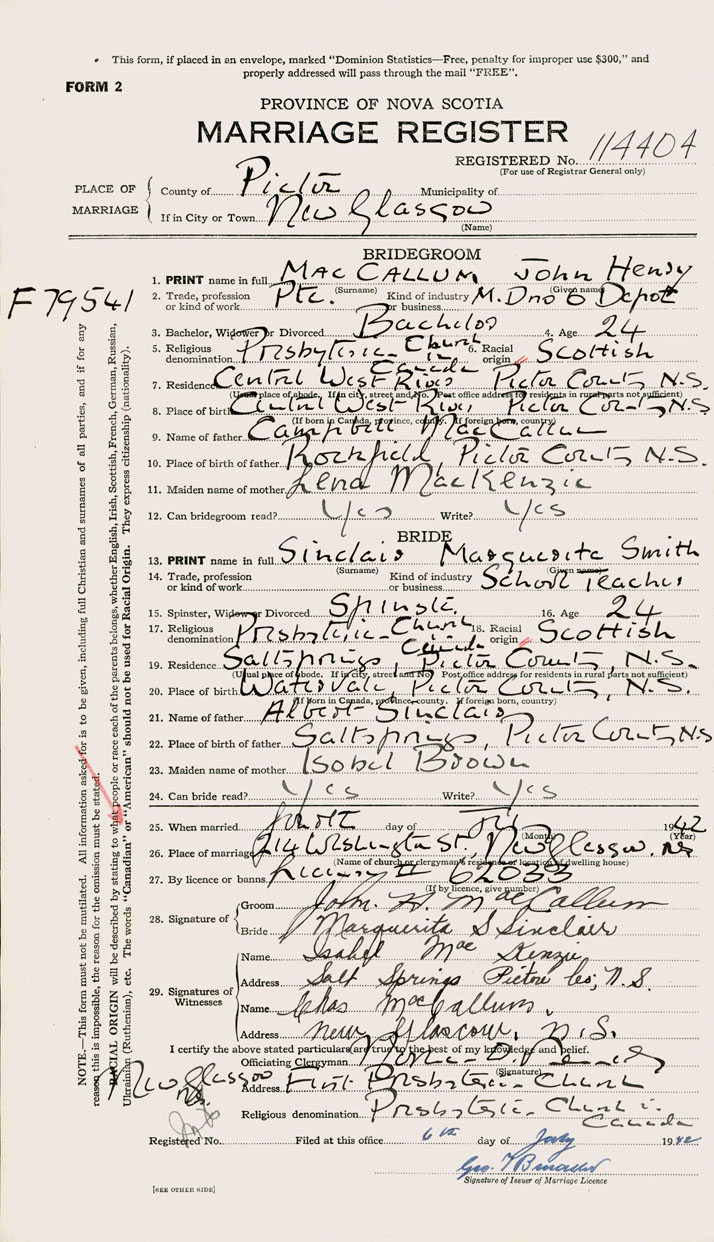 • This form, if placed in an envelope, marked "Dominion Statistics—Free, penalty for improper use $300," and
properly addressed will pass through the mail "FREE".
FORM 2
PROVINCE OF NOVA SCOTIA
MARRIAGE REGISTER
REGISTERED No. 114404
(For use of Registrar General only)
PLACE OF MARRIAGE
County of Pictou Municipality of
If in City or Town New Glasgow
(Name)
F79541
BRIDEGROOM
1. PRINT name in full MacCallum John Henry
(Surname) (Given name)
2. Trade, profession or kind of work Ptc. Kind of industry or business M. Dno 6 Depot
3. Bachelor, Widower or Divorced Bachelor 4. Age 24
5. Religious denomination Presbyterian Church in Canada 6. Racial origin Scottish
7. Residence Central West River Pictou County N.S.
(Usual place of abode. If in city, street and No. Post office address for residents in rural parts not sufficient)
8. Place of birth Central West River Pictou County N.S
(If born in Canada, province, county. If foreign born, country)
9. Name of father Campbell MacCallum
10. Place of birth of father Rockfield, Pictou County N.S.
11. Maiden name of mother Lena MacKenzie
12. Can bridegroom read? Yes Write? Yes
BRIDE
13. PRINT name in full Sinclair Marguerita Smith
(Surname) (Given name)
14. Trade, profession or kind of work Kind of industry or business School Teacher
15. Spinster, Widow or Divorced Spinster 16. Age 24
17. Religious denomination Presbyterian Church Canada 18. Racial origin Scottish
19. Residence Saltsprings, Pictou County, N.S.
(Usual place of abode. If in city, street and No. Post office address for residents in rural parts not sufficient)
20. Place of birth Watervale, Pictou County, N.S.
(If born in Canada, province, county. If foreign born, country)
21. Name of father Albert Sinclair
22. Place of birth of father Saltsprings, Pictou County N.S
23. Maiden name of mother Isobel Brown
24. Can bride read? Yes Write? Yes
25. When married day of July 1942
(Month) (Year)
26. Place of marriage 214 Washington St., New Glasgow. N.S
(Name of church or clergyman's residence or location of dwelling house)
27. By licence or banns # 62033
(If by licence, give number)
28. Signature of
Groom John H. MacCallum
Bride Marguerita S Sinclair
29. Signatures of Witnesses
Name Isabel MacKenzie
Address Salt Springs Pictou Co; N.S.
Name Chas MacCallum.
Address New Glasgow, N.S.
I certify the above stated particulars are true to the best of my knowledge and belief.
Officiating Clergyman
(Signature)
New Glasgow N.S.
Address First Presbyterian Church
Religious denomination Presbyterian Church in Canada
Registered No. Filed at this office 6th day of July 1942
Geo.
Signature of Issuer of Marriage Licence
[SEE OTHER SIDE]
NOTE.—This form must not be mutilated. All information asked for is to be given, including full Christian and surnames of all parties, and if for any
reason this is impossible, the reason for the omission must be stated.
RACIAL ORIGIN will be described by stating to what people or race each of the parents belongs, whether English, Irish, Scottish, French, German, Russian,
Ukrainian (Ruthenian), etc. The words "Canadian" or "American" should not be used for Racial Origin. They express citizenship (nationality).